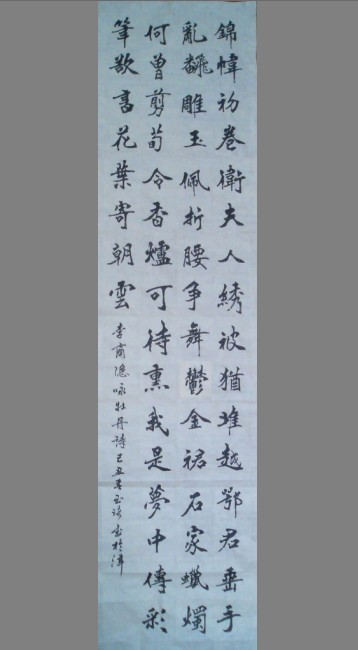 錦幃初卷衛夫人綉被猶堆越鄂君垂手
亂飜雕玉佩折腰争舞鬱金裙石家蠟燭
何曾剪荀令香爐可待熏我是夢中傳彩
筆欲書花葉寄朝雲
李商隐咏牡丹詩己丑春玉於津